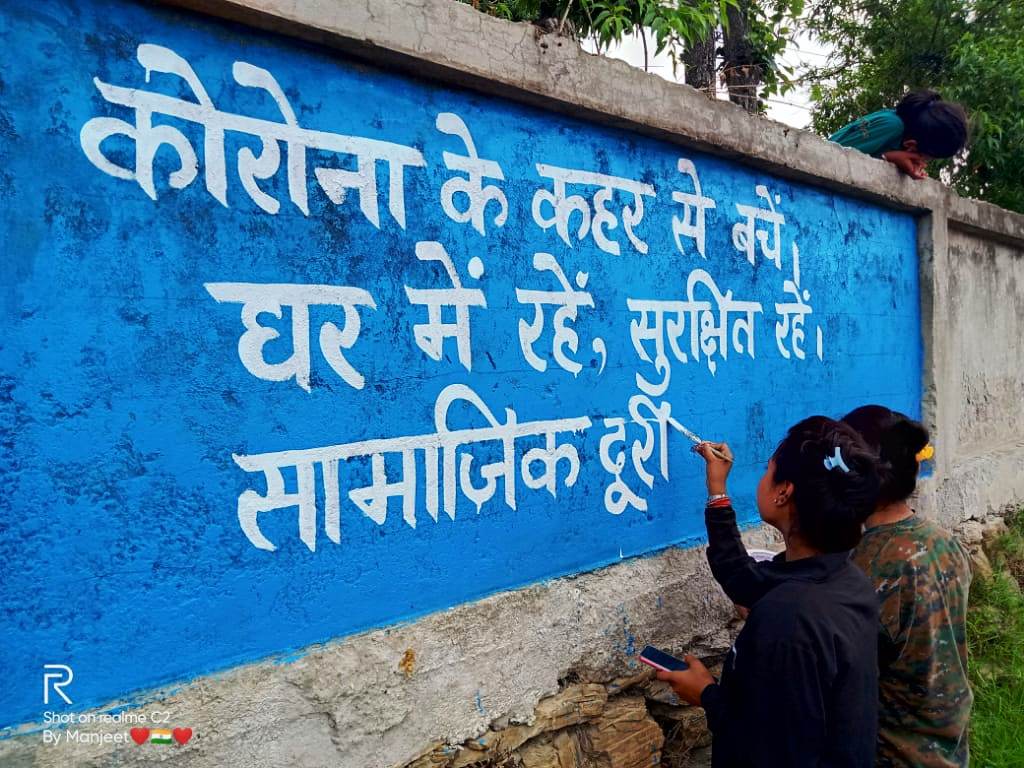 कोरोना के कहर से बचें।
घर में रहें, सुरक्षित रहें।
सामाजिक दूरी
R
Shot on realme C2
By Manjeet❤️🇮🇳❤️